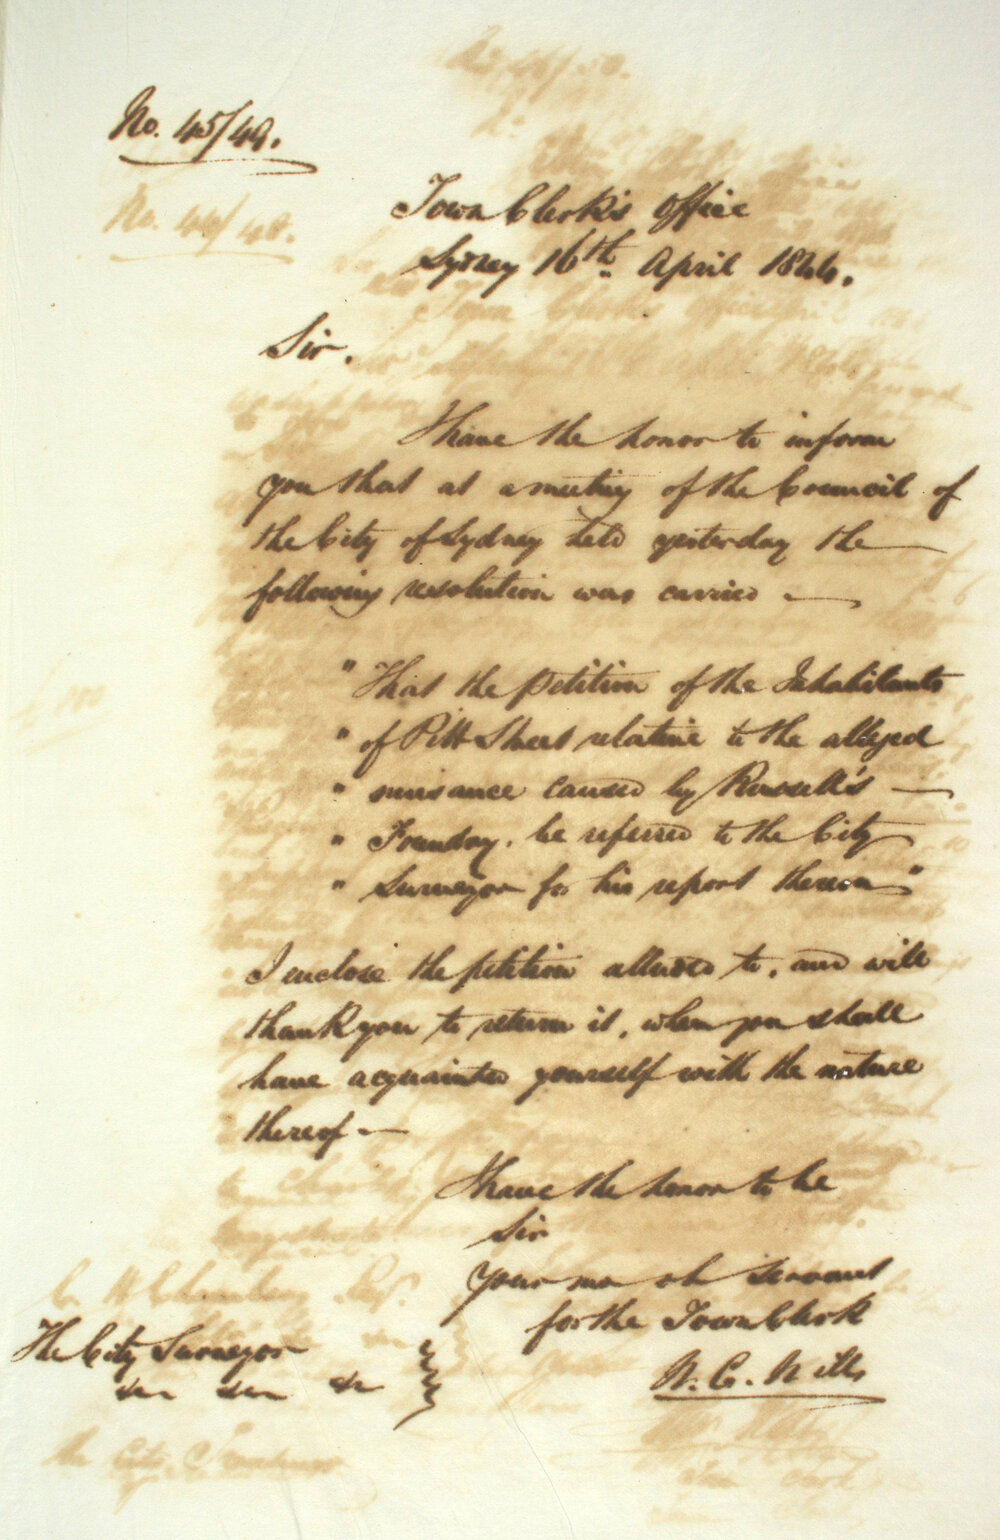 No. 45/44.
Town Clerk's Office
Sydney 16th April 1844.
Sir.
I have the honor to inform
you that at a meeting of the Council of
the City of Sydney held yesterday the
following resolution was carried —
" That the petition of the Inhabitants
" of Pitt Street relative to the alleged
" nuisance caused by Russell's —
" Foundry, be referred to the City
" Surveyor for his report thereon"
I enclose the petition alluded to, and will
thank you to return it, when you shall
have acquainted yourself with the nature
thereof —
I have the honor to be
Sir
Your mo ob Servant
for the Town Clerk
The City Surveyor